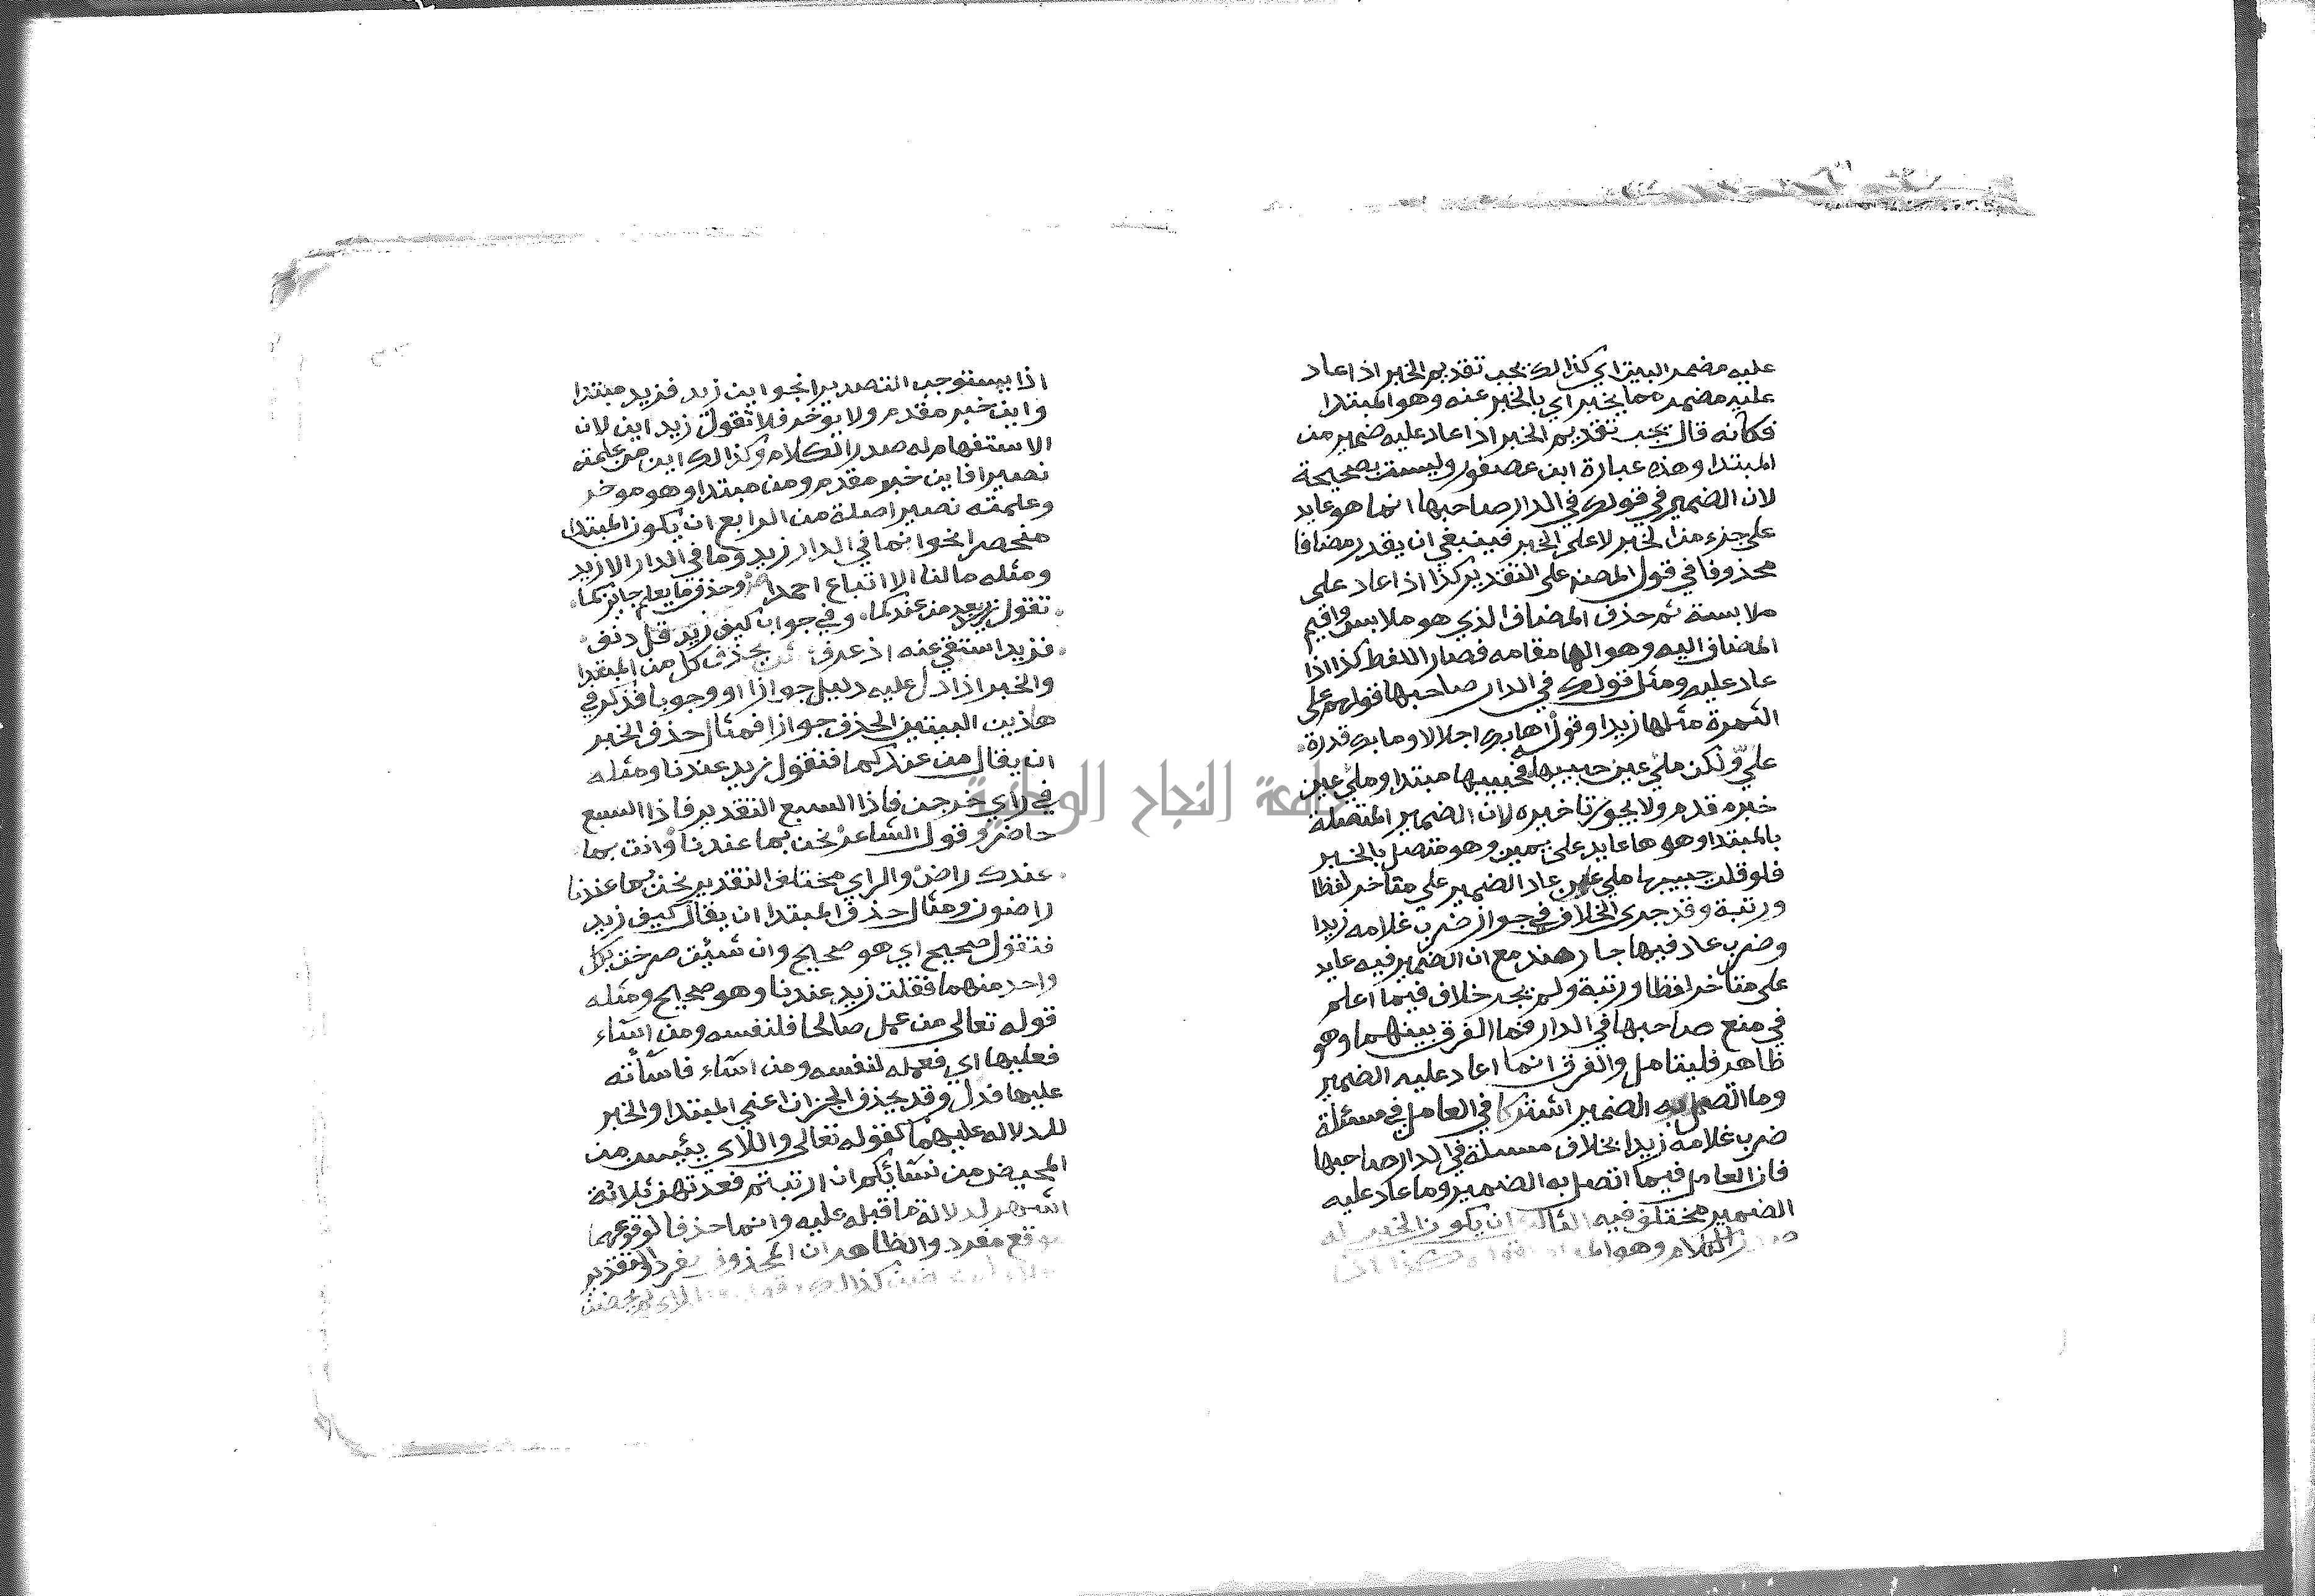 عليه مضمر البيت اي كذلك يجب تقديم الخبر اذا عاد
عليه مضمر مما يخبر اي بالخبر عنه وهو المبتدا
فكانه قال يجب تقديم الخبر اذا عاد عليه ضمير من
المبتدا وهذه عبارة ابن عصفور وليست بصحيحة
لان الضمير في قولك في الدار صاحبها انما هو عايد
على جزء من الخبر لا على الخبر فينبغي ان يقدر مضافا
محذوفا في قول المصنف على التقدير كذا اذا عاد على
ملابسه ثم حذف المضاف الذي هو ملابس واقيم
المضاف اليه وهو الها مقامه فصار اللفظ كذا اذا
عاد عليه ومثل قولك في الدار صاحبها قولهم على
الثمرة مثلها زيدا وقوله اهابك اجلالا وما بك قدرة
علي ولكن ملئ عين حبيبها فحبيبها مبتدا وملئ عين
خبره قدم ولا يجوز تاخيره لان الضمير المتصل
بالمبتدا وهو ها عايد على عين وهو متصل بالخبر
فلو قلت حبيبها ملئ عين عاد الضمير على متاخر لفظا
ورتبة وقد جرى الخلاف في جواز ضرب غلامه زيدا
وضرب عاد فيها جار هند مع ان الضمير فيه عايد
على متاخر لفظا ورتبة ولم يجر خلاف فيما اعلم
في منع صاحبها في الدار فما الفرق بينهما وهو
ظاهر فليتامل والفرق انما اعاد عليه الضمير
وما اتصل به الضمير اشتركا في العامل في مسئلة
ضرب غلامه زيدا بخلاف مسئلة في الدار صاحبها
فان العامل فيما اتصل به الضمير وما عاد عليه
الضمير مختلف فيه الثالث ان يكون الخبر له
صدر الكلام وهو المراد بقوله وكذا اذا
اذا يستوجب التصديرا نحو اين زيد فزيد مبتدا
واين خبر مقدم ولا يوخر فلا تقول زيد اين لان
الاستفهام له صدر الكلام وكذلك اين من علمته
نصيرا فاين خبر مقدم ومن مبتدا وهو موخر
وعلمته نصيرا صلة من الرابع ان يكون المبتدا
منحصرا نحو انما في الدار زيد وما في الدار الا زيد
ومثله مالنا الا اتباع احمدا وحذف ما يعلم جايز كما
تقول زيد بعد من عندكما وفي جواب كيف زيد قل دنف
فزيد استغني عنه اذ عرف يحذف كل من المبتدا
والخبر اذا دل عليه دليل جوازا او وجوبا فذكر في
هاذين البيتين الحذف جوازا فمثال حذف الخبر
ان يقال من عندكما فتقول زيد عندنا ومثله
في راي خرجت فاذا السبع التقدير فاذا السبع
حاضر وقول الشاعر نحن بما عندنا وانت بما
عندك راض والراي مختلف التقدير نحن بما عندنا
راضون ومثال حذف المبتدا ان يقال كيف زيد
فتقول صحيح اي هو صحيح وان شئت صرحت بكل
واحد منهما فقلت زيد عندنا وهو صحيح ومثله
قوله تعالى من عمل صالحا فلنفسه ومن اساء
فعليها اي فعمله لنفسه ومن اساء فاسأته
عليها قدل وقد يحذف الجزان اعني المبتدا والخبر
للدلاله عليهما كقوله تعالى واللاي يئسن من
المحيض من نسائكم ان ارتبتم فعدتهن ثلاثة
اشهر لدلالة ما قبله عليه وانما حذفا لوقوعهما
موقع مفرد والظاهر ان المحذوف مفرد والتقدير
كذلك لم يحضن
جامعة النجاح الوطنية